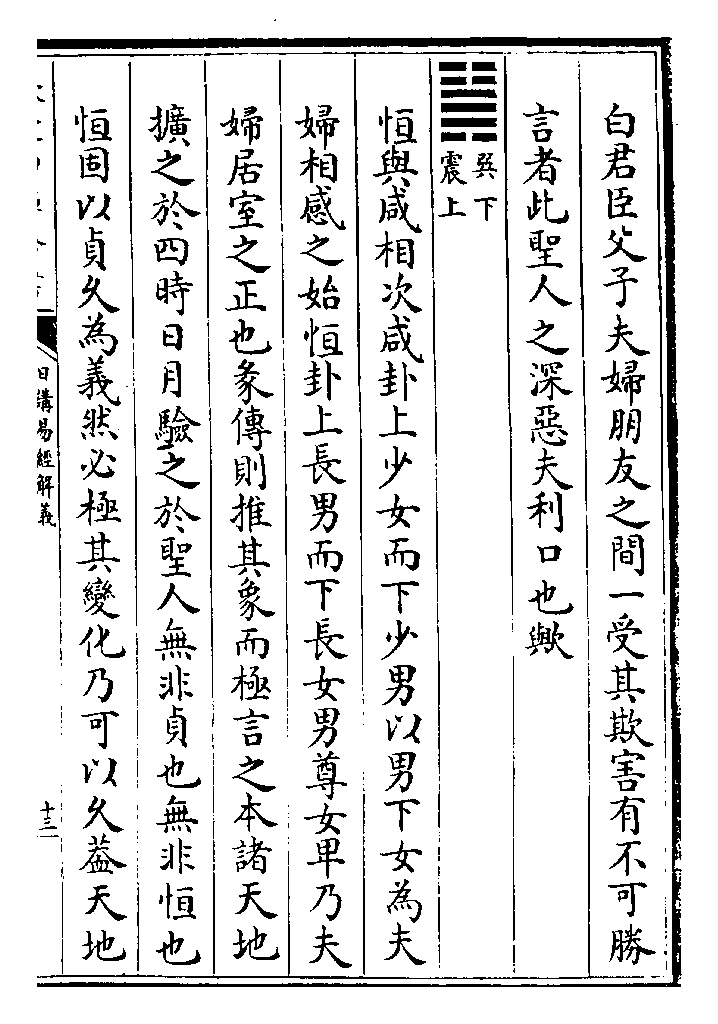 白君臣父子夫婦朋友之間一受其欺害有不可勝
言者此聖人之深惡夫利口也歟
巽下
震上
恒與咸相次咸卦上少女而下少男以男下女為夫
婦相感之始恒卦上長男而下長女男尊女卑乃夫
婦居室之正也彖傳則推其象而極言之本諸天地
擴之於四時日月驗之於聖人無非貞也無非恒也
恒固以貞久為義然必極其變化乃可以久葢天地
日講易經解義
十三